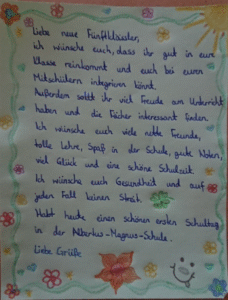 Liebe neue Fünftklässler,
ich wünsche euch, dass ihr gut in eure
Klasse reinkommt und euch bei euren
Mitschülern integrieren könnt.
Außerdem sollt ihr viel Freude am Unterricht
haben und die Fächer interessant finden.
Ich wünsche euch viele nette Freunde,
tolle Lehrer, Spaß in der Schule, gute Noten,
viel Glück und eine schöne Schulzeit.
Ich wünsche euch Gesundheit und auf
jeden Fall keinen Streit.
Habt heute einen schönen ersten Schultag
in der Albertus-Magnus-Schule.
Liebe Grüße